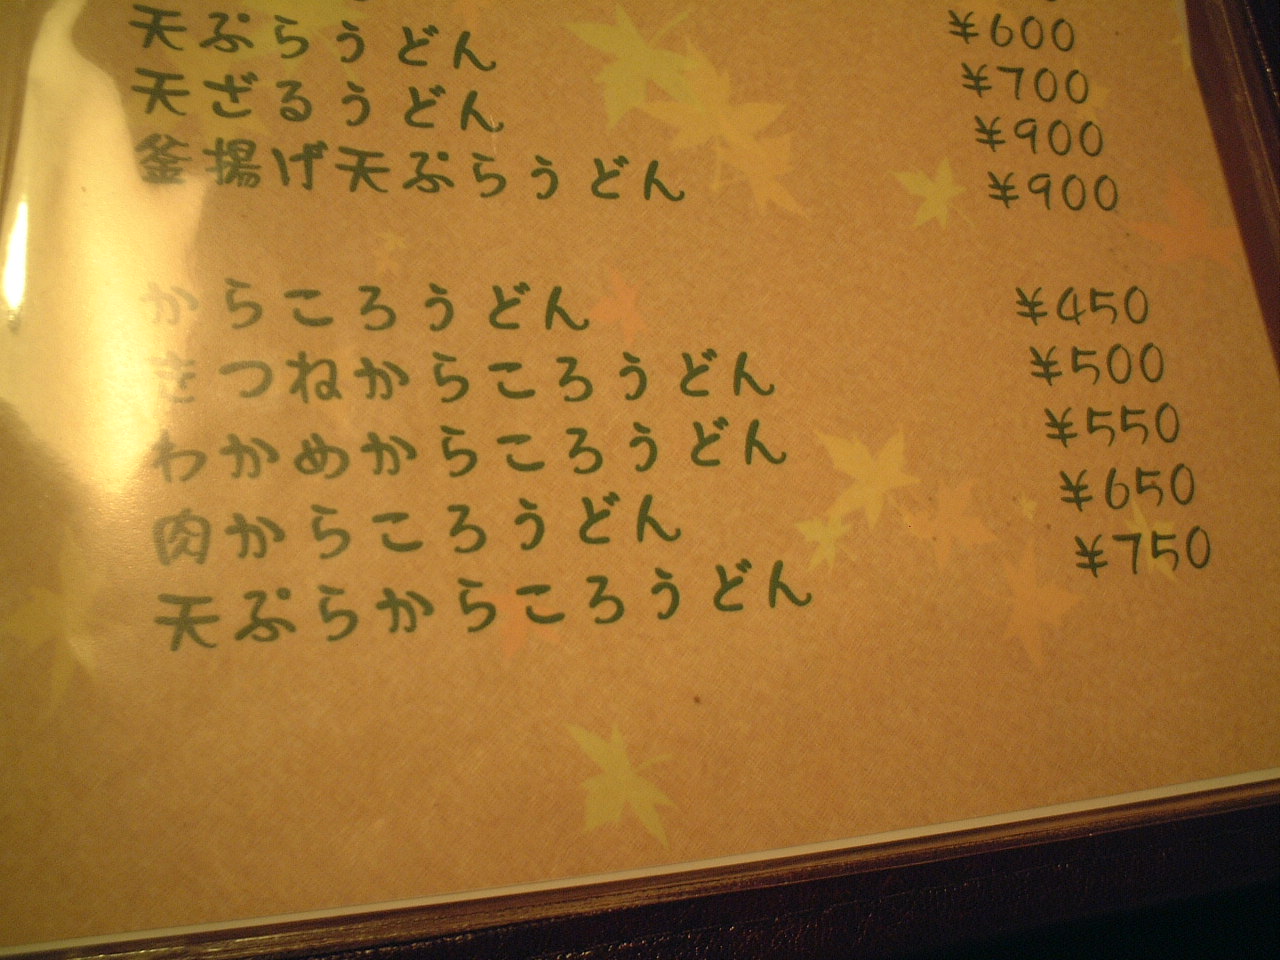 ¥600
天ぷらうどん ¥700
天ざるうどん ¥900
釜揚げ天ぷらうどん ¥900
からころうどん ¥450
きつねからころうどん ¥500
わかめからころうどん ¥550
肉からころうどん ¥650
天ぷらからころうどん ¥750